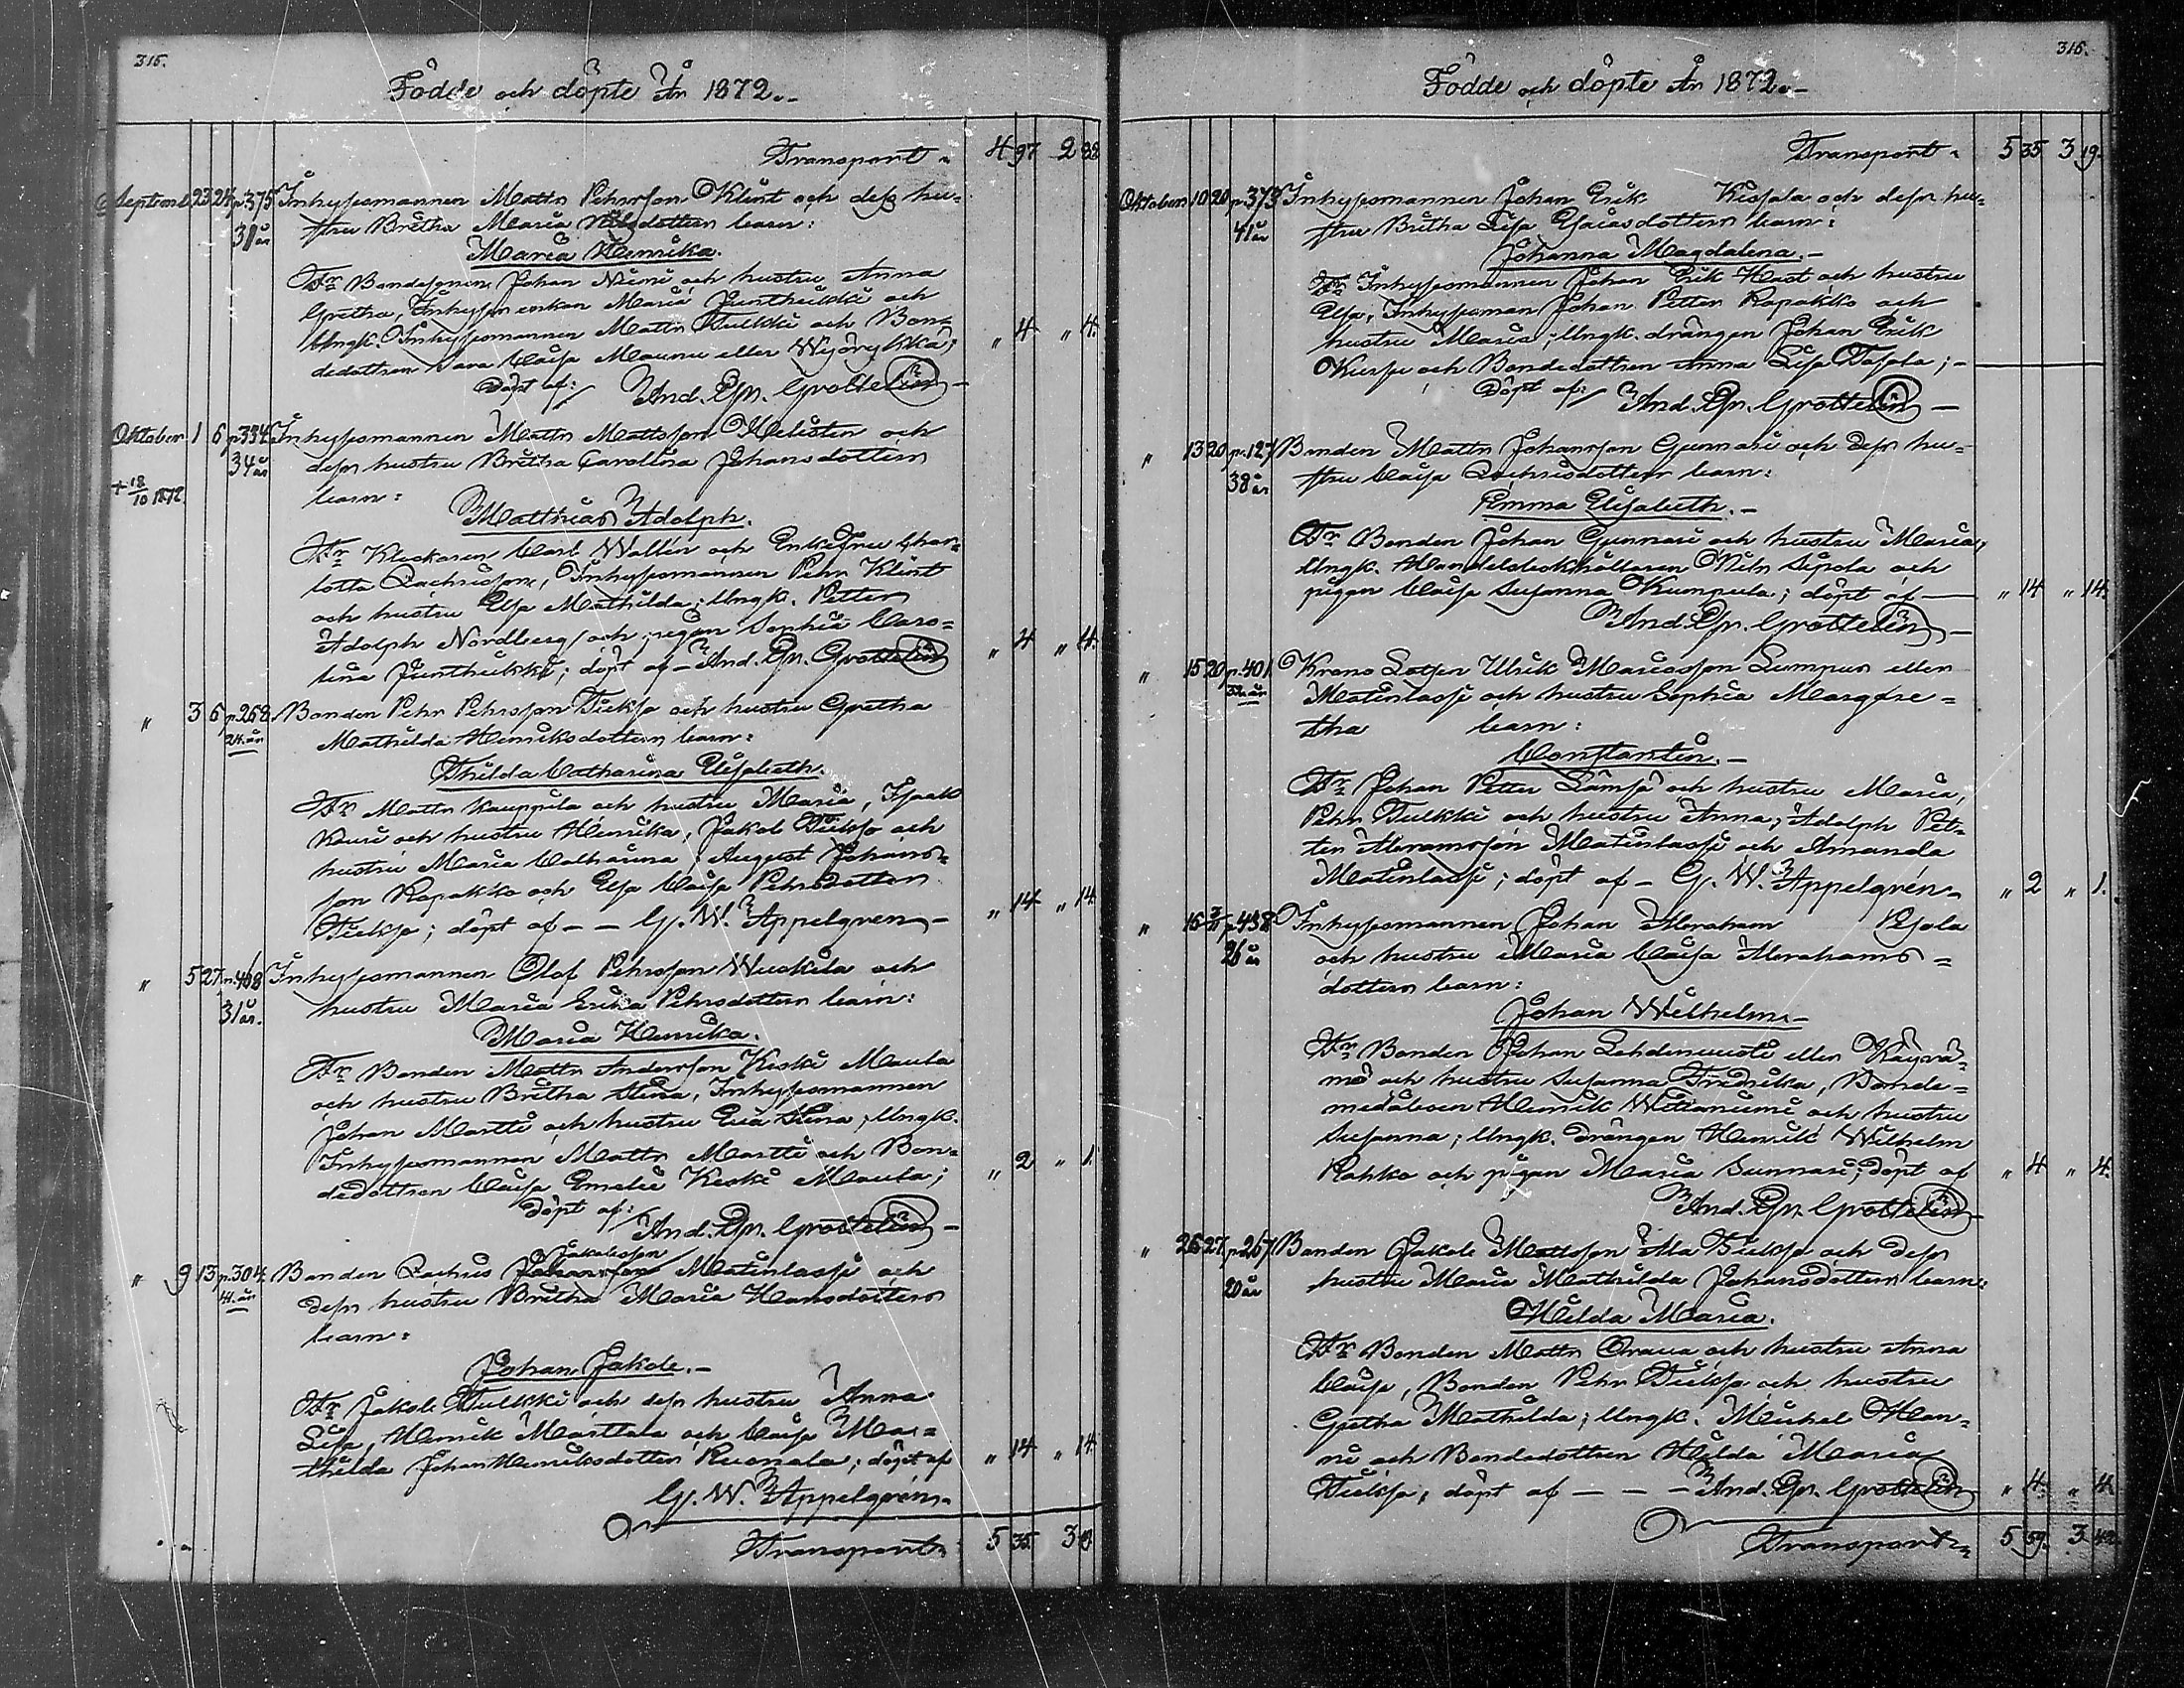 315.
Födde och döpte År 1872.-
Transport " 4 97 2 82
Septemb. 23 24 p.375 Inhysesmannen Matts Pehrsson Klint och dess hu-
31 år stru Britha Maria Nilsdotters barn:
Maria Henrika.
Fr Bondesonen Johan Niemi och hustru Anna
Gretha, Inhyses enkan Maria Junthuikki och
Ungk. Inhysesmannen Matts Tulkki och Bon-
" 4 " 4.
dedottren Sara Caisa Maunu eller
Döpt af: And. Gr. Grottelin
Oktober 1 6 p.334 Inhysesmannen Matts Mattsson Helisten och
34 år dess hustru Britha Carolina Johansdotters
+ 18/10 1872 barn:
Matthias Adolph.
Fr Klockaren Carl Wallin och Enkefru Char-
lotta Zachrisson, Inhysesmannen Pehr Klint
och hustru Elsa Mathilda; Ungk. Petter
Adolph Nordberg och pigan Sophia Caro-
lina Junthuikki; döpt af - And. Gr. Grottelin " 4 " 4.
" 3 6 p.268. Bonden Pehr Pehrsson Tieksо och hustru Gretha
24. år Mathilda Henriksdotters barn:
Thilda Catharina Elisabeth.
Fr Matts Kauppila och hustru Maria, Isaak
Kauri och hustru Henrika, Jakob Tiekso och
hustru Maria Catharina; August Johans-
son Rapakko och Elsa Caisa Pehrsdotter
Tiekso; döpt af - - G. W. Appelgren - " 14 " 14
" 5 27 p.468 Inhysesmannen Olof Pehrsson Wuokila och
31 år. hustru Maria Erika Pehrsdotters barn:
Maria Henrika.
Fr Bonden Matts Andersson Keski Maula
och hustru Britha Stina, Inhysesmannen
Johan Martti och hustru Eva Stina; Ungk.
Inhysesmannen Matts Martti och Bon- " 2 " 1.
dedottren Caisa Emelie Keski Maula;
döpt af: And. Gr. Grottelin -
" 9 13 p.304. Bonden Zachris Johansson Jakobsson Matinlassi och
41. år dess hustru Britha Maria Hansdotters
barn:
Johan Jakob. -
Fr Jakob Tulkki och dess hustru Anna
Lisa, Henrik Marttala och Caisa Ma-
thilda Johan Henriksdotter Ruonala; döpt af " 14 " 14
G. W. Appelgrén.
Transport " 5 35. 3 19.
316.
Födde och döpte År 1872.-
Transport " 5 35 3 19.
Oktober 10 20 p.373 Inhysesmannen Johan Erik Kissala och dess hu-
41 år stru Britha Lisa Esaiasdotters barn:
Johanna Magdalena. -
Fr Inhysesmannen Johan Erik Hast och hustru
Elsa, Inhysesman Johan Petter Rapakko och
hustru Maria; Ungk. drängen Johan Erik
och Bondedottren Anna Lisa Tapola; -
Döpt af: And. Gr. Grottelin -
" 13 20 p.127 Bonden Matts Johansson Gunnari och dess hu-
38 år stru Caisa Zachrisdotters barn:
Emma Elisabeth. -
Fr Bonden Johan Gunnari och hustru Maria,
Ungk. Handelsbokhållaren Nils Sipola och
pigan Caisa Susanna Kumpula; döpt af - " 14 " 14.
And. Gr. Grottelin -
" 15 20 p.401. Krono Lotsen Ulrik Mariasson Lumpus eller
32. år Matinlassi och hustru Sophia Margare-
tha barn:
Constantin. -
Fr Johan Petter Lämsä och hustru Maria,
Pehr Tulkki och hustru Anna; Adolph Pet-
ter Abramsson Matinlassi och Amanda
Matinlassi; döpt af - G. W. Appelgrén - " 2 " 1.
" 16 3/11 p.438 Inhysesmannen Johan Abraham Pesola
26 år och hustru Maria Caisa Abrahams-
dotters barn:
Johan Wilhelm. -
Fr Bonden Johan Lehdinniusti eller Käyrä-
mö och hustru Susanna Fredrika, Bonde-
medåboen Henrik Wittaniemi och hustru
Susanna; Ungk. Drängen Henrik Wilhelm
Rahko och pigan Maria Sunnari; döpt af " 4 " 4.
And. Gr. Grottelin -
" 26 27 p.267 Bonden Jakob Mattsson Ala Tiekso och dess
20 år hustru Maria Mathilda Johansdotters barn:
Hilda Maria.
Fr Bonden Matts Orava och hustru Anna
Caisa, Bonden Pehr Tiekso och hustru
Gretha Mathilda; Ungk. Michel Han-
ni och Bondedottren Hilda Maria
Tiekso; döpt af - - - And. Gr. Grottelin " 4. " 4.
Transport " 5 59. 3 42.